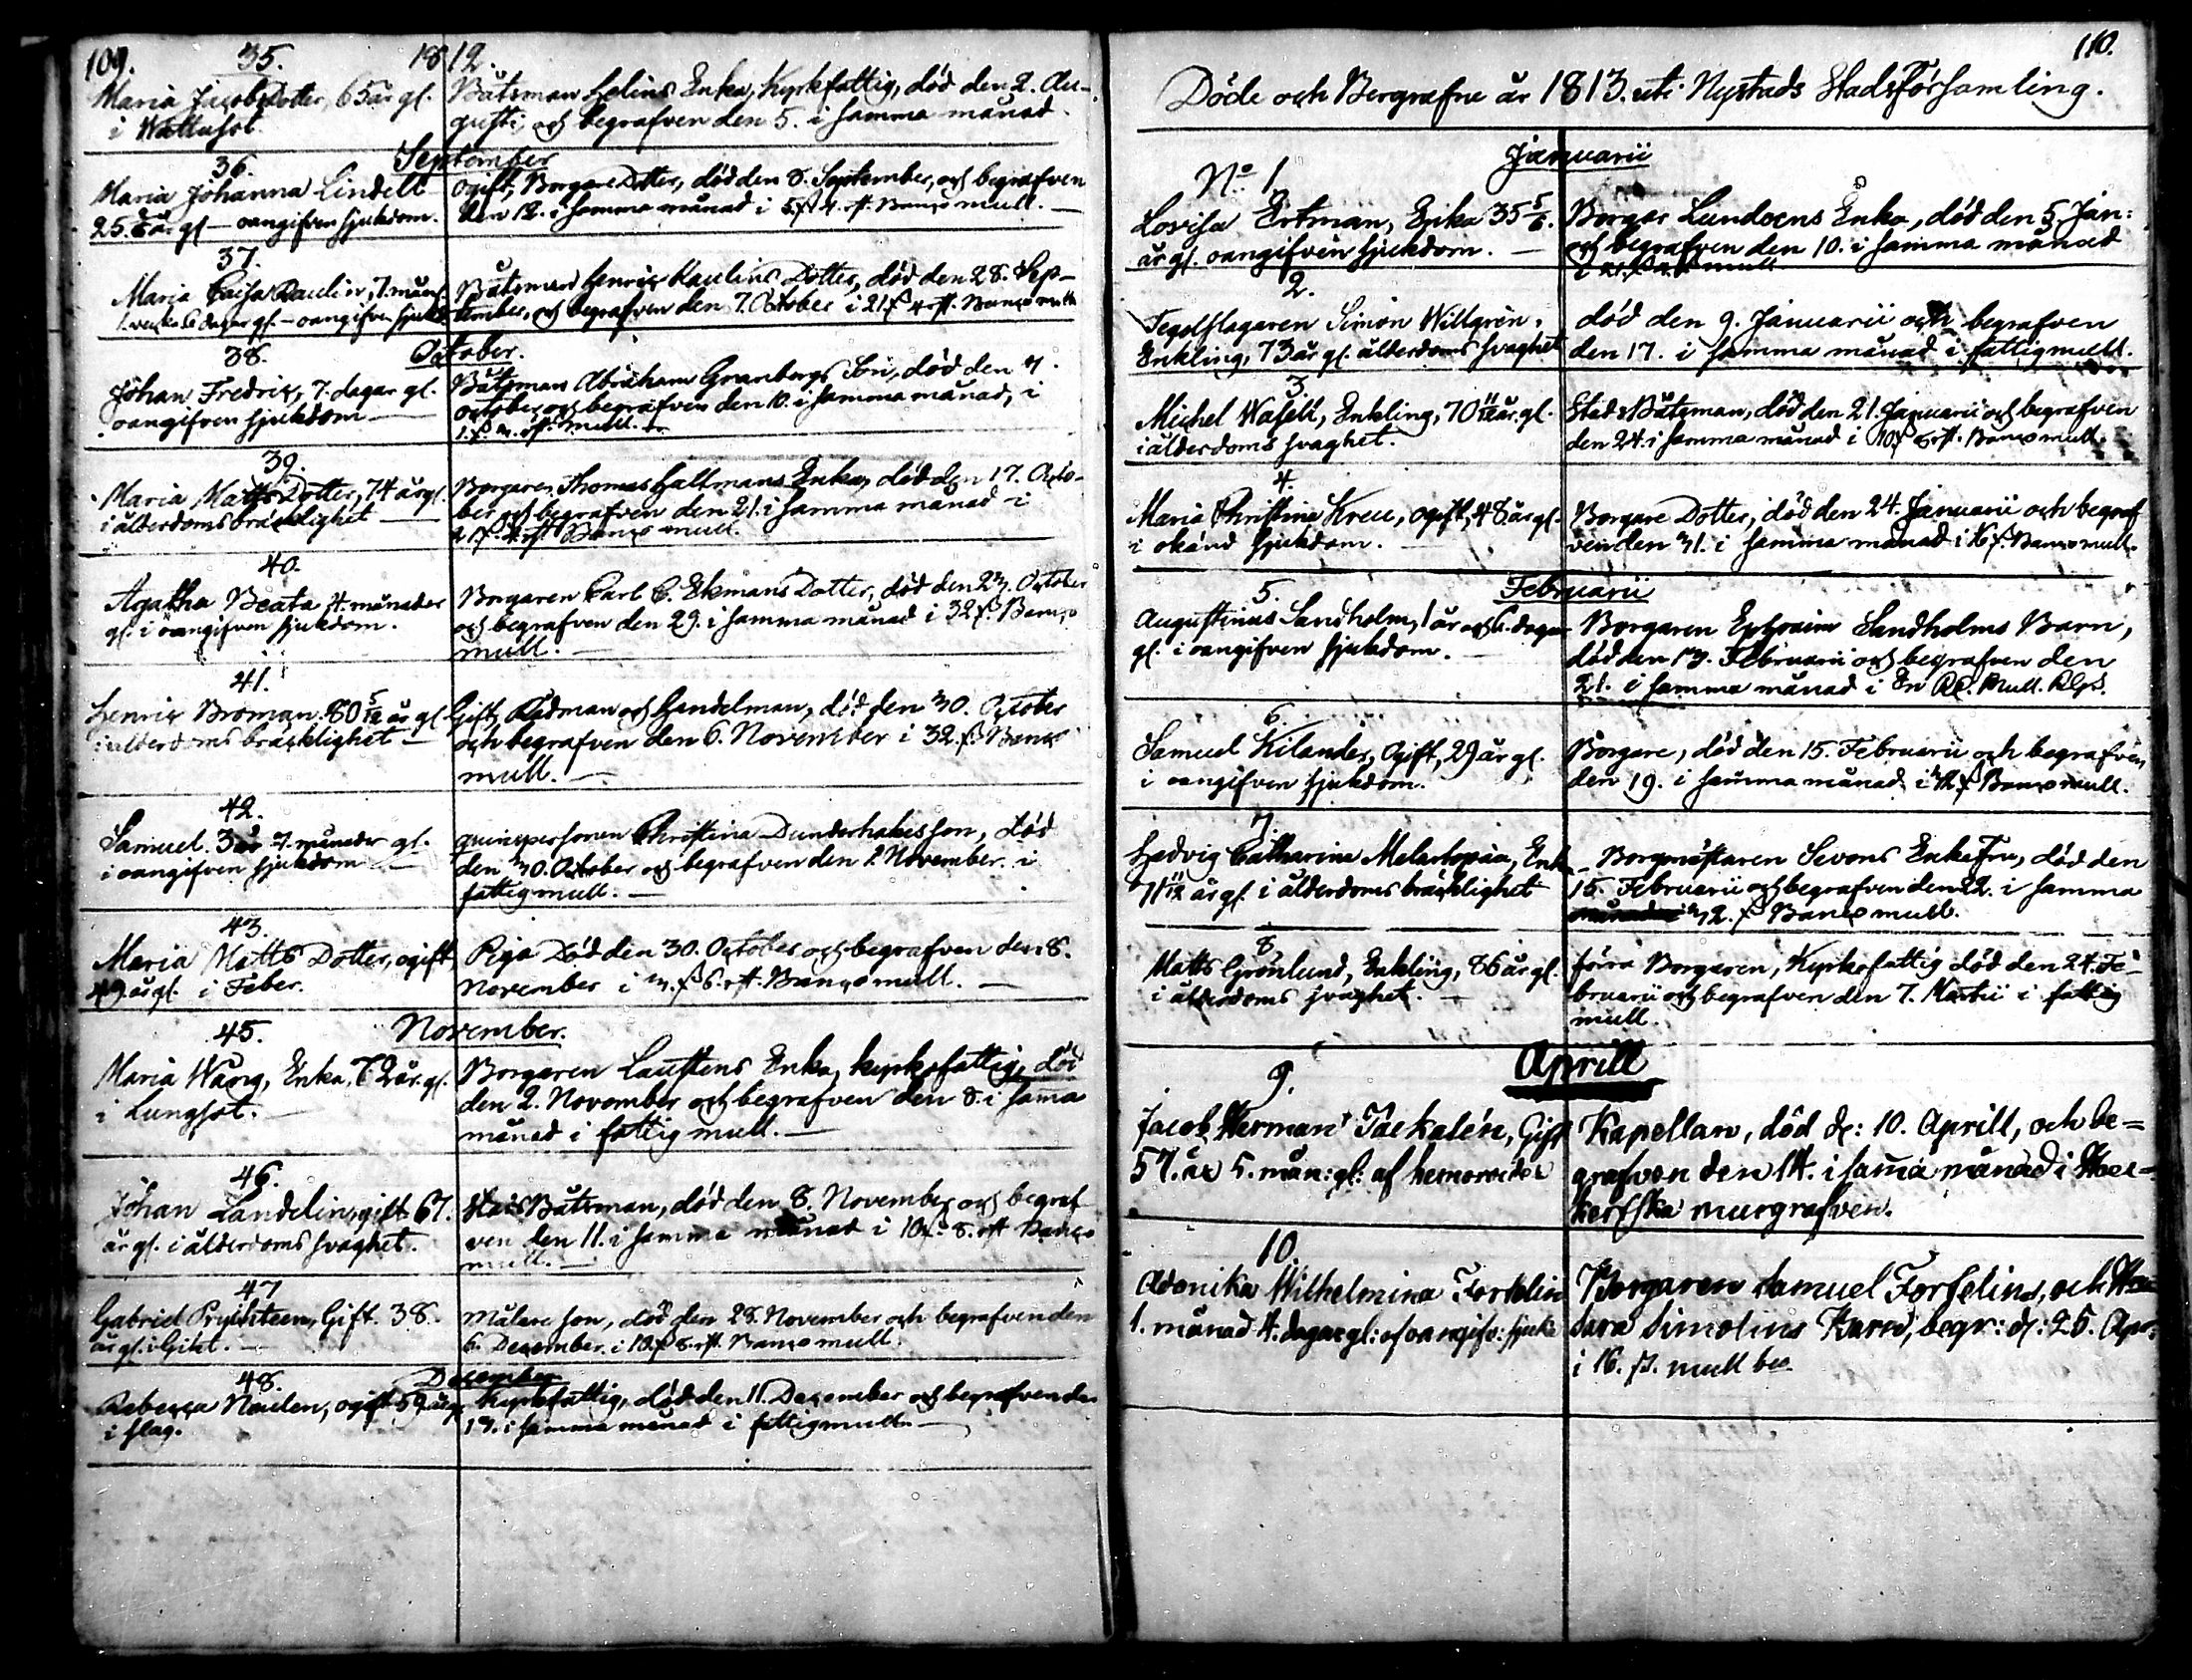 109. 1812.
35.
Maria JacobsDotter, 65 år gl.
i Wattusot.
Båtsman Helins Enka, Kyrkfattig, död den 2. Au-
gusti, och begrafven den 5. i samma månad.
September
36.
Maria Johanna Lindell
25. år gl — oangifven sjukdom.
ogift, BorgareDotter, död den 8. September, och begrafven
den 12. i samma månad i 5 ß 4. rst. Banco mull. —
37.
Maria Caisa Raulin, 7. mån.
1. vecka 6 dagar gl. — oangifven sjukd.
Båtsman Henric Raulins Dotter, död den 28. Sep-
tember, och begrafven den 7. October i 21. ß 4 rst. Banco mull
October.
38.
Johan Fredric, 7. dagar gl.
oangifven sjukdom —
Båtsman Abraham Granbergs Son, död den 7.
october och begrafven den 10. i samma månad, i
mull.
39.
Maria MattsDotter, 74 år gl.
i ålderdoms bräcklighet —
Borgaren Thomas Hallmans Enka, död den 17. Octo-
ber och begrafven den 21. i samma månad i
2 ß. 4 rst Banco mull.
40.
Agatha Beata 4. månader
gl. i oangifven sjukdom.
Borgaren Carl C. Ekmans Dotter, död den 23. October
och begrafven den 29. i samma månad i 32 ß. Banco
mull. —
41.
Henric Broman. 80 5/12 år gl
i ålderdoms bräcklighet —
Gift, Rådman och Handelman, död den 30. October
och begrafven den 6. November i 32. ß. Banco
mull. —
42.
Samuel. 3 år 7. månader gl.
i oangifven sjukdom —
Christina Dunderhakes son, död
den 30. October och begrafven den 1. November. i
fattigmull. —
43.
Maria Matts Dotter, ogift,
49 år gl. i Feber.
Piga Död den 30. October och begrafven den 8.
November i 3. ß 6. rst. Banco mull. —
November.
45.
Maria Warg, Enka, 72 år. gl.
i Lungsot. —
Borgaren Laustens Enka, kyrkofattig, död
den 2. November och begrafven den 8. i sama
månad i fattig mull. —
46.
Johan Landelin, gift 67.
år gl. i ålderdoms svaghet.
Båtsman, död den 8. November och begraf
ven den 11. i samma månad i 10 ß. 8. rst Banco
mull. —
47
Gabriel Gift. 38.
år gl. i Gikt. —
Målare son, död den 28. November och begrafven den
6. December. i 10. ß 8. rst. Banco mull.
December
48.
Rebecca Naulen, ogift 59 år gl.
i slag.
Kyrkfattig, död den 11. December och begrafven den
13. i samma månad i fattigmull. —
110.
Döde och Bergrafne år 1813. uti Nystads Stadsförsamling.
Januarii
No 1.
Lovisa Ertman, Enka 35 5/6.
år gl. oangifven sjukdom. —
Borgar Lundoens Enka, död den 5. Jan:
och begrafven den 10. i samma månad
mull
2.
Tegelslagaren Simon Willgrén,
Enkling, 73 år gl. ålderdoms svaghet
död den 9. Januarii och begrafven
den 17. i samma månad i fattigmull.
3.
Michel Wasell, Enkling, 70 11/12 år. gl.
i ålderdoms svaghet.
Stads Båtsman, död den 21. Januarii och begrafven
den 24. i samma månad i 10 ß 6 rst. Banco mull.
4.
Maria Christina Kreu, ogift, 48. år gl.
i okänd sjukdom. —
Borgare Dotter, död den 24. Januarii och begraf
ven den 31. i samma månad i 16 ß. Banco mull.
Februarii
5.
Augustinus Sandholm, 1 år och 6. dagar
gl. i oangifven sjukdom. —
Borgaren Ephraim Sandholms Barn,
död den 13. Februarii och begrafven den
21. i samma månad i En Mull.
6.
Samuel Kilander, Ogift, 29 år gl.
i oangifven sjukdom.
Borgare, död den 15. Februarii och begrafven
den 19. i samma månad i 32 ß Banco mull.
7.
Hedvig Catharina Melartopäa, Enk
71 11/12 år gl. i ålderdoms bräcklighet
Borgmästaren Sevons EnkeFru, död den
15. Februarii och begrafven den 22. i samma
månad i 32. ß Banco mull.
8.
Matts Grönlund, Enkling, 86 år gl.
i ålderdoms svaghet. —
förra Borgaren, Kyrkofattig död den 24. Fe-
bruarii och begrafven den 7. Martii i fattig
mull.
Aprill
9.
Jacob Herman Täckalén, Gift
57. år 5. mån: gl: af hemorroider
Kapellan, död d: 10. Aprill, och be=
grafven den 14. i sama månad i
murgrafven.
10.
Adonika Wilhelmina Forselin
1. månad 4. dagar gl: af oangifv: sjukd
Borgaren Samuel Forselins, och
Sara Simolins Barn, begr: d: 25. Apr:
i 16. ß. mull bco